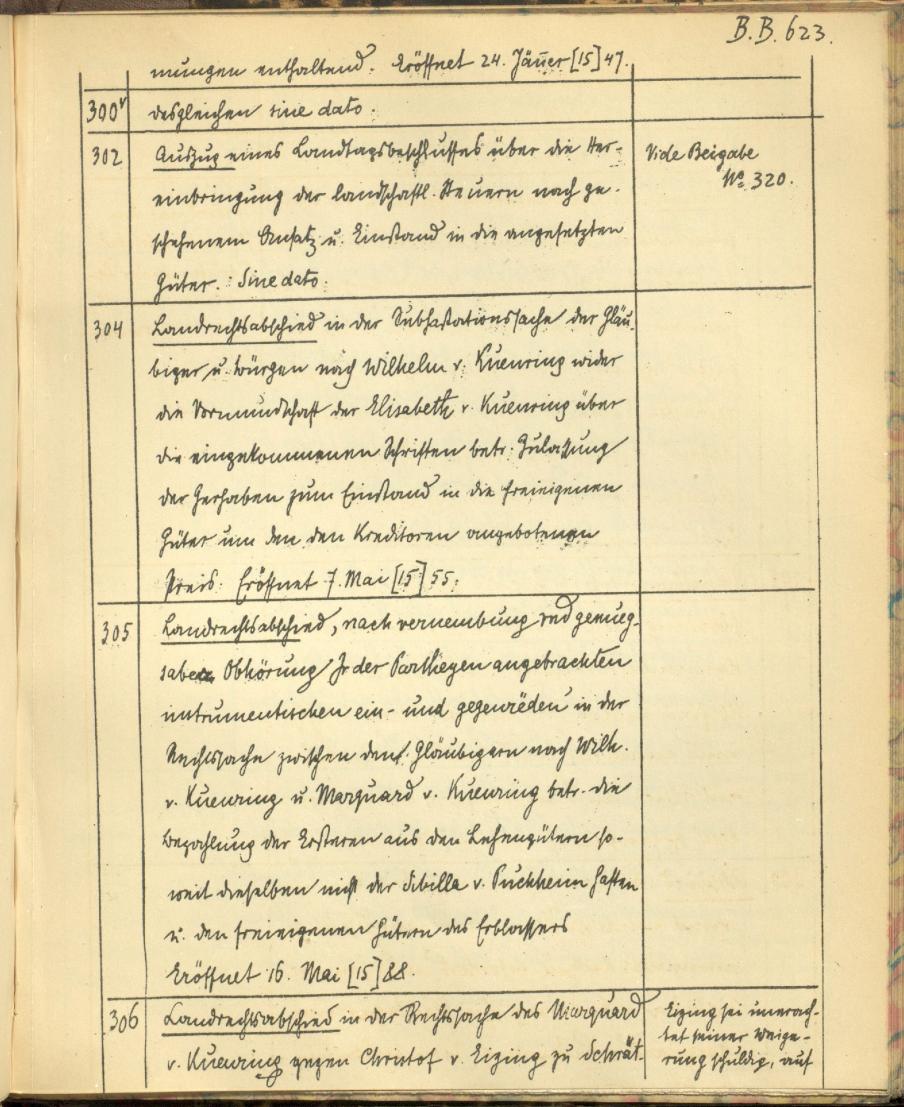 B.B. 623.
mungen enthaltend. Eröffnet 24. Jäner [15]47.
300v desgleichen sine dato.
302 Auszug eines Landtagsbeschlusses über die Her-
einbringung der landschaftl. Steuern nach ge-
schehenem Ansatz u. Einstand in die angesetzten
Güter. : Sine dato.
Vide Beigabe
No. 320.
304 Landrechtsabschied in der Subhastationssache der Gläu-
biger u. Bürgen nach Wilhelm v. Kuenring wider
die Vormundschaft der Elisabeth v. Kuenring über
die eingekommenen Schriften betr. Zulassung
der Gerhaben zum Einstand in die freieigenen
Güter um den den Kreditoren angebotenen
Preis. Eröffnet 7. Mai [15]55.
305 Landrechtsabschied, nach vernembung vnd genueg-
samer Obhörung Jr der Partheyen angebrachten
instrumentischen ein- und gegenrëden in der
Rechtssache zwischen den Gläubigern nach Wilh.
v. Kuenring u. Marquard v. Kuenring betr. die
Bezahlung der Ersteren aus den Lehengütern so-
weit dieselben nicht der Sibilla v. Puchheim haften
u. den freieigenen Gütern des Erblassers
Eröffnet 16. Mai [15]88.
306 Landrechtsabschied in der Rechtssache des Marquard
v. Kuenring gegen Christof v. Eizing zu Schrat-
Eizing sei unerach-
tet seiner Weige-
rung schuldig, auf